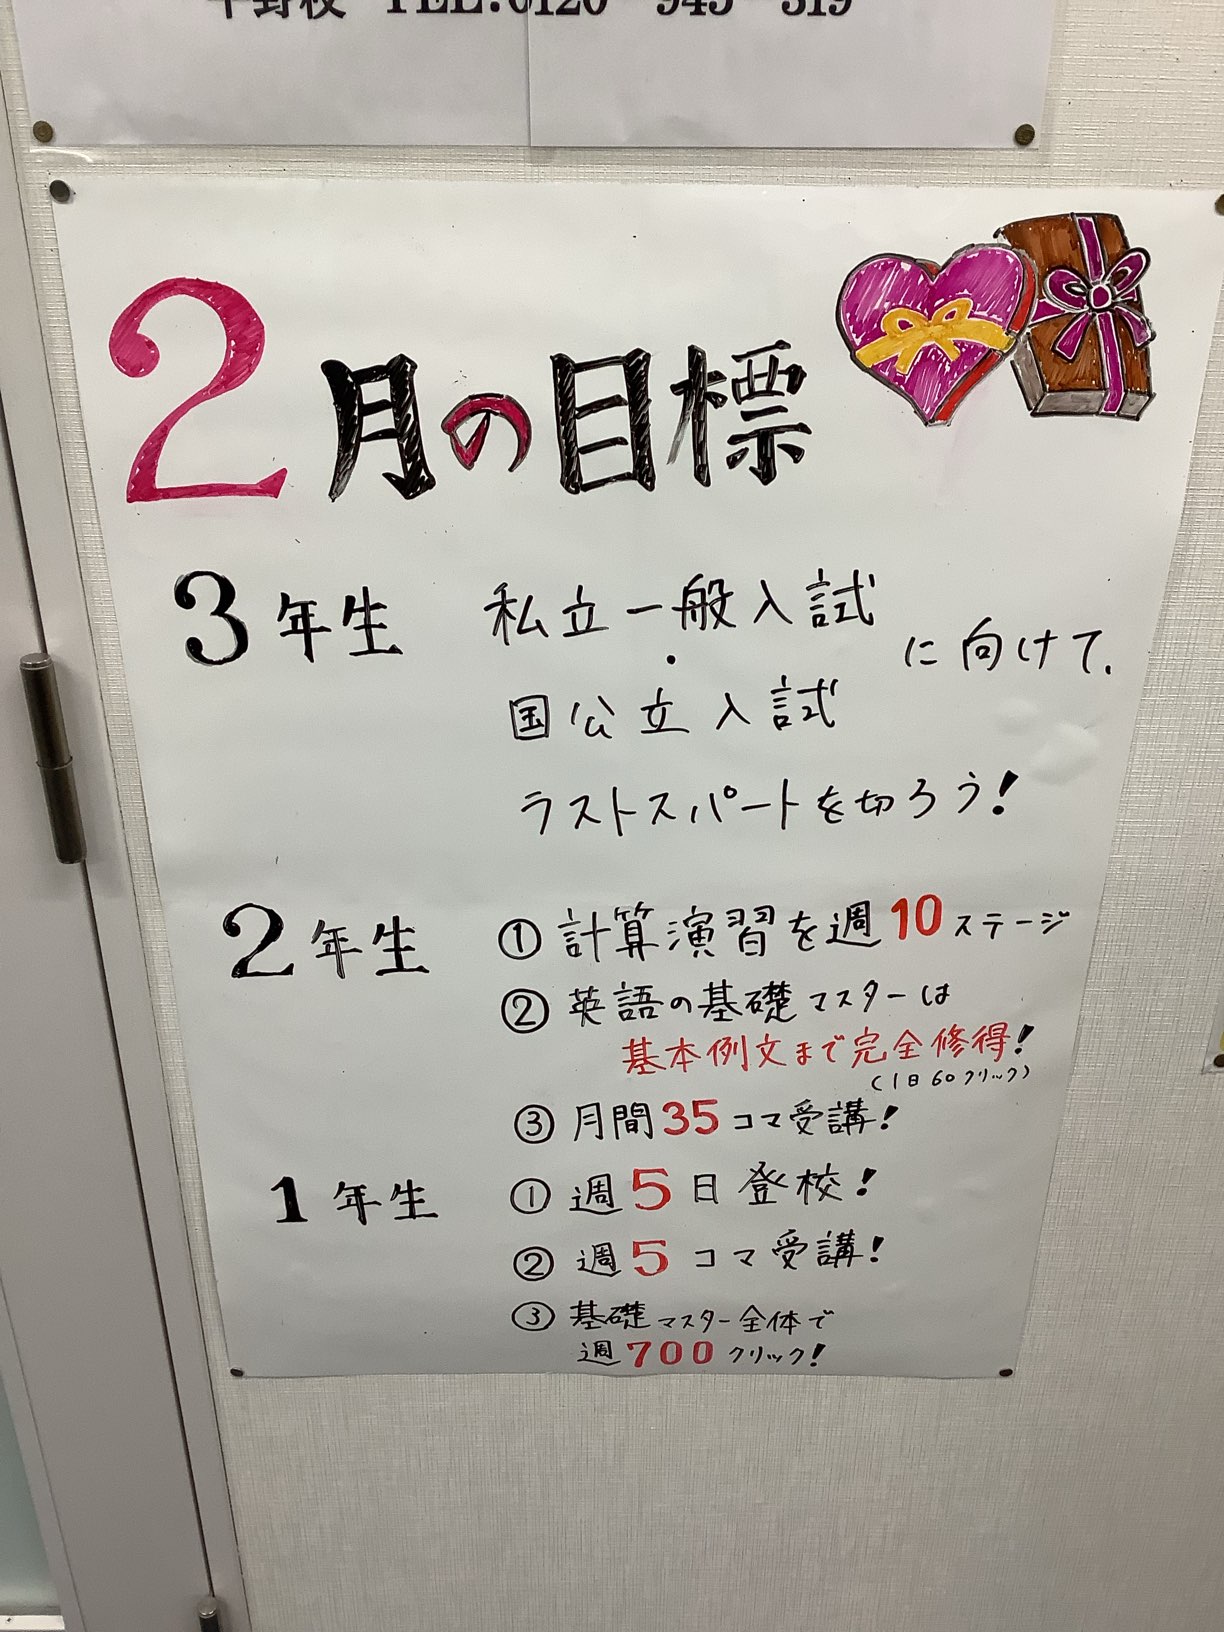 TEL:0120-945-319
2月の目標
3年生 私立一般入試
・
国公立入試
に向けて、
ラストスパートを切ろう!
2年生 ①計算演習を週10ステージ
②英語の基礎マスターは
基本例文まで完全修得!
(1日60クリック)
③月間35コマ受講!
1年生 ①週5日登校!
②週5コマ受講!
③基礎マスター全体で
週700クリック!